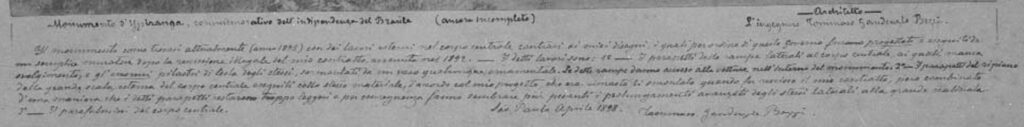 Architetto
Monumento d'Ypiranga, commemorativo dell'indipendenza del Brasile (ancora incompleto) L'ingegnere Tommaso Gaudenzio Bezzi.
Il monumento come trovasi attualmente (anno 1898) con dei lavori esterni nel corpo centrale contrari ai miei disegni, i quali per ordine di questo governo furono progettati e eseguiti da
un semplice muratore dopo la rescisione illegale del mio contratto, avvenuta nel 1892. — I detti lavori sono: 1º — I parapetti delle rampe laterali al corpo centrale, ai quali manca
svolgimento, e gli enormi pilastri di testa degli stessi, sormontati da un vaso qualunque ornamentale. Le dette rampe danno accesso alle vetture nell'interno del monumento. 2º — I parapetti del ripiano
della grande scala esterna del corpo centrale eseguiti collo stesso materiale, d'accordo col mio progetto che era rimasto li quando fu resciso il mio contratto, però combinato
d'una maniera che i detti parapetti restarono troppo leggeri e per conseguenza fanno sembrare più pesanti i prolungamenti avanzati degli stessi laterali alla grande
3º — Il parafulmini del corpo centrale. San Paulo Aprile 1898. Tommaso Gaudenzio Bezzi.